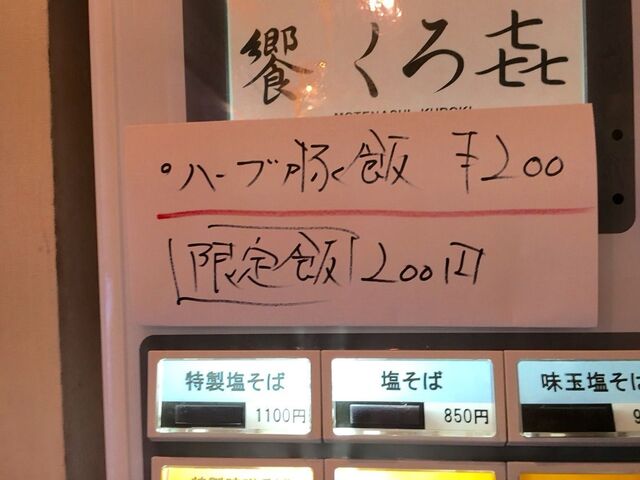 饗 くろ㐂
MOTENASHI KUROKI
ハーブ豚飯 ¥200
限定飯 200円
特製塩そば
1100円
塩そば
850円
味玉塩そ
9
特製味噌そば